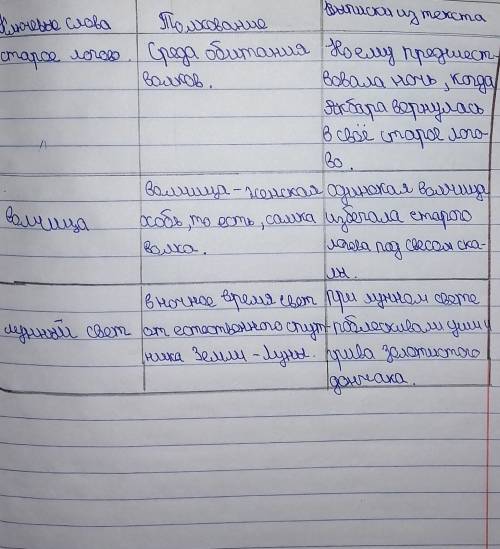 Ключевые слова
Толкование
Выписки из текста
старое логово.
Среда обитания
волков.
Коему предшест-
вовала ночь, когда
Акбара вернулась
в своё старое лого-
во.
волчица
волчица - женская
особь, то есть, самка
волка.
одинокая волчица
избегала старого
логова под свесом ска-
лы.
лунный свет
в ночное время свет
от естественного спут-
ника Земли - Луны.
при лунном свете
поблескивали
грива золотистого
дончака.